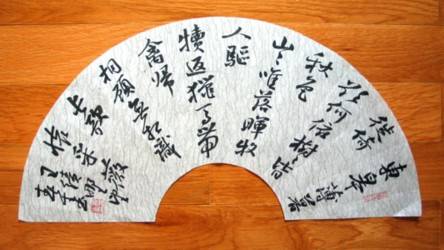 東皋薄暮
徙倚
欲何依樹皆
秋色
山々唯落暉牧
人驅
犢返獵馬帶
禽歸
相顧無相識
長歌
懷采薇